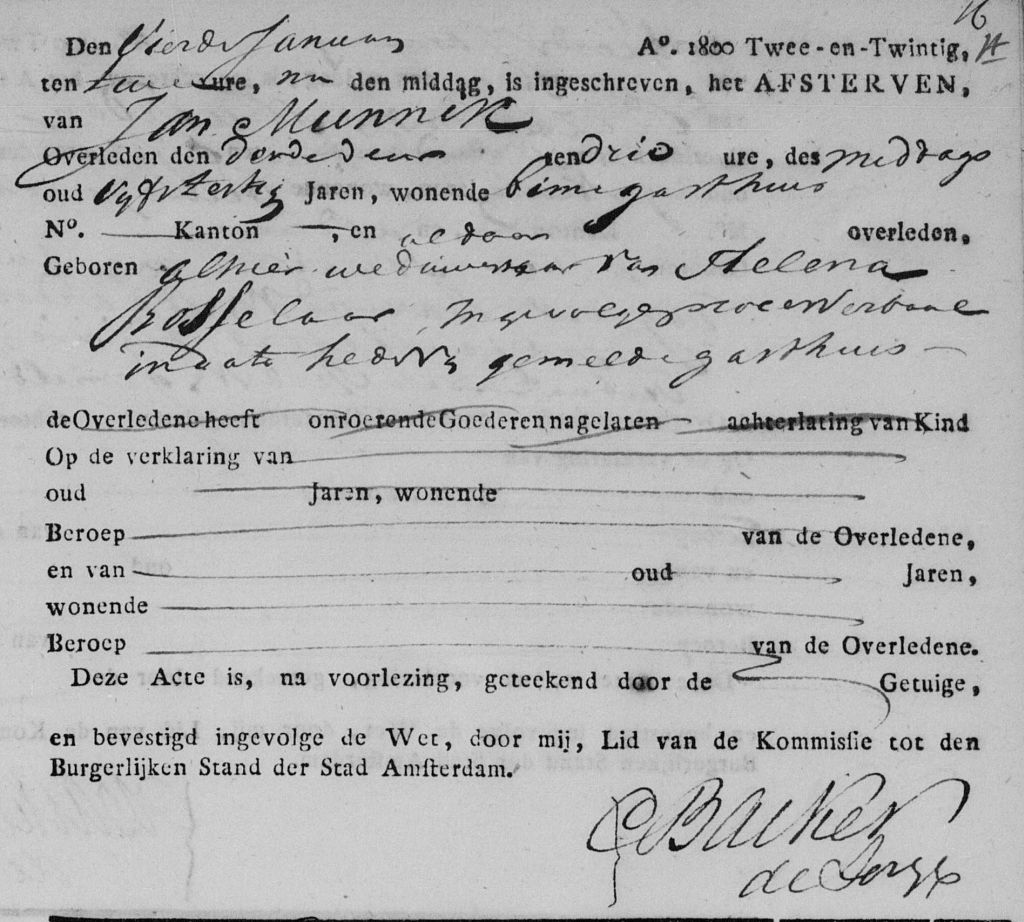 16
Den Vierde Januarij A°. 1800 Twee-en-Twintig,
ten twee ure, na den middag, is ingeschreven, het AFSTERVEN,
van Jan Munnik
Overleden den derde dezer ten drie ure, des middags
oud Jaren, wonende gasthuis
N°. Kanton , en aldaar overleden,
Geboren alhier weduwenaar van Helena
Rosselaar, Ingevolge proces Verbaal
gemelde gasthuis
de Overledene heeft onroerende Goederen nagelaten achterlating van Kind
Op de verklaring van
oud Jaren, wonende
Beroep van de Overledene,
en van oud Jaren,
wonende
Beroep van de Overledene.
Deze Acte is, na voorlezing, geteekend door de Getuige,
en bevestigd ingevolge de Wet, door mij, Lid van de Kommissie tot den
Burgerlijken Stand der Stad Amsterdam.
Backer